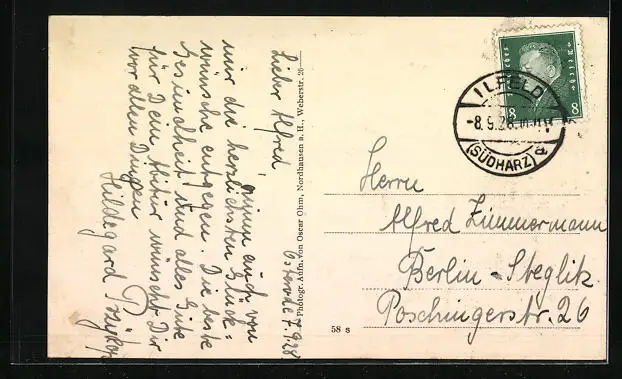 Lieber Alfred,
nimm auch von
mir die herzlichsten Glück=
wünsche entgegen. Die beste
Gesundheit und alles Gute
für Dein Abitur wünscht Dir
vor allen Dingen
Hildegard
Osterode 7.9.28
Photogr. Aufn. von Oscar Ohm, Nordhausen a. H., Weberstr. 20
58 s
8 8
ILFELD
-8.9.28.
(SÜDHARZ) a
Herrn
Alfred Zimmermann
Berlin-Steglitz
Poschingerstr. 26